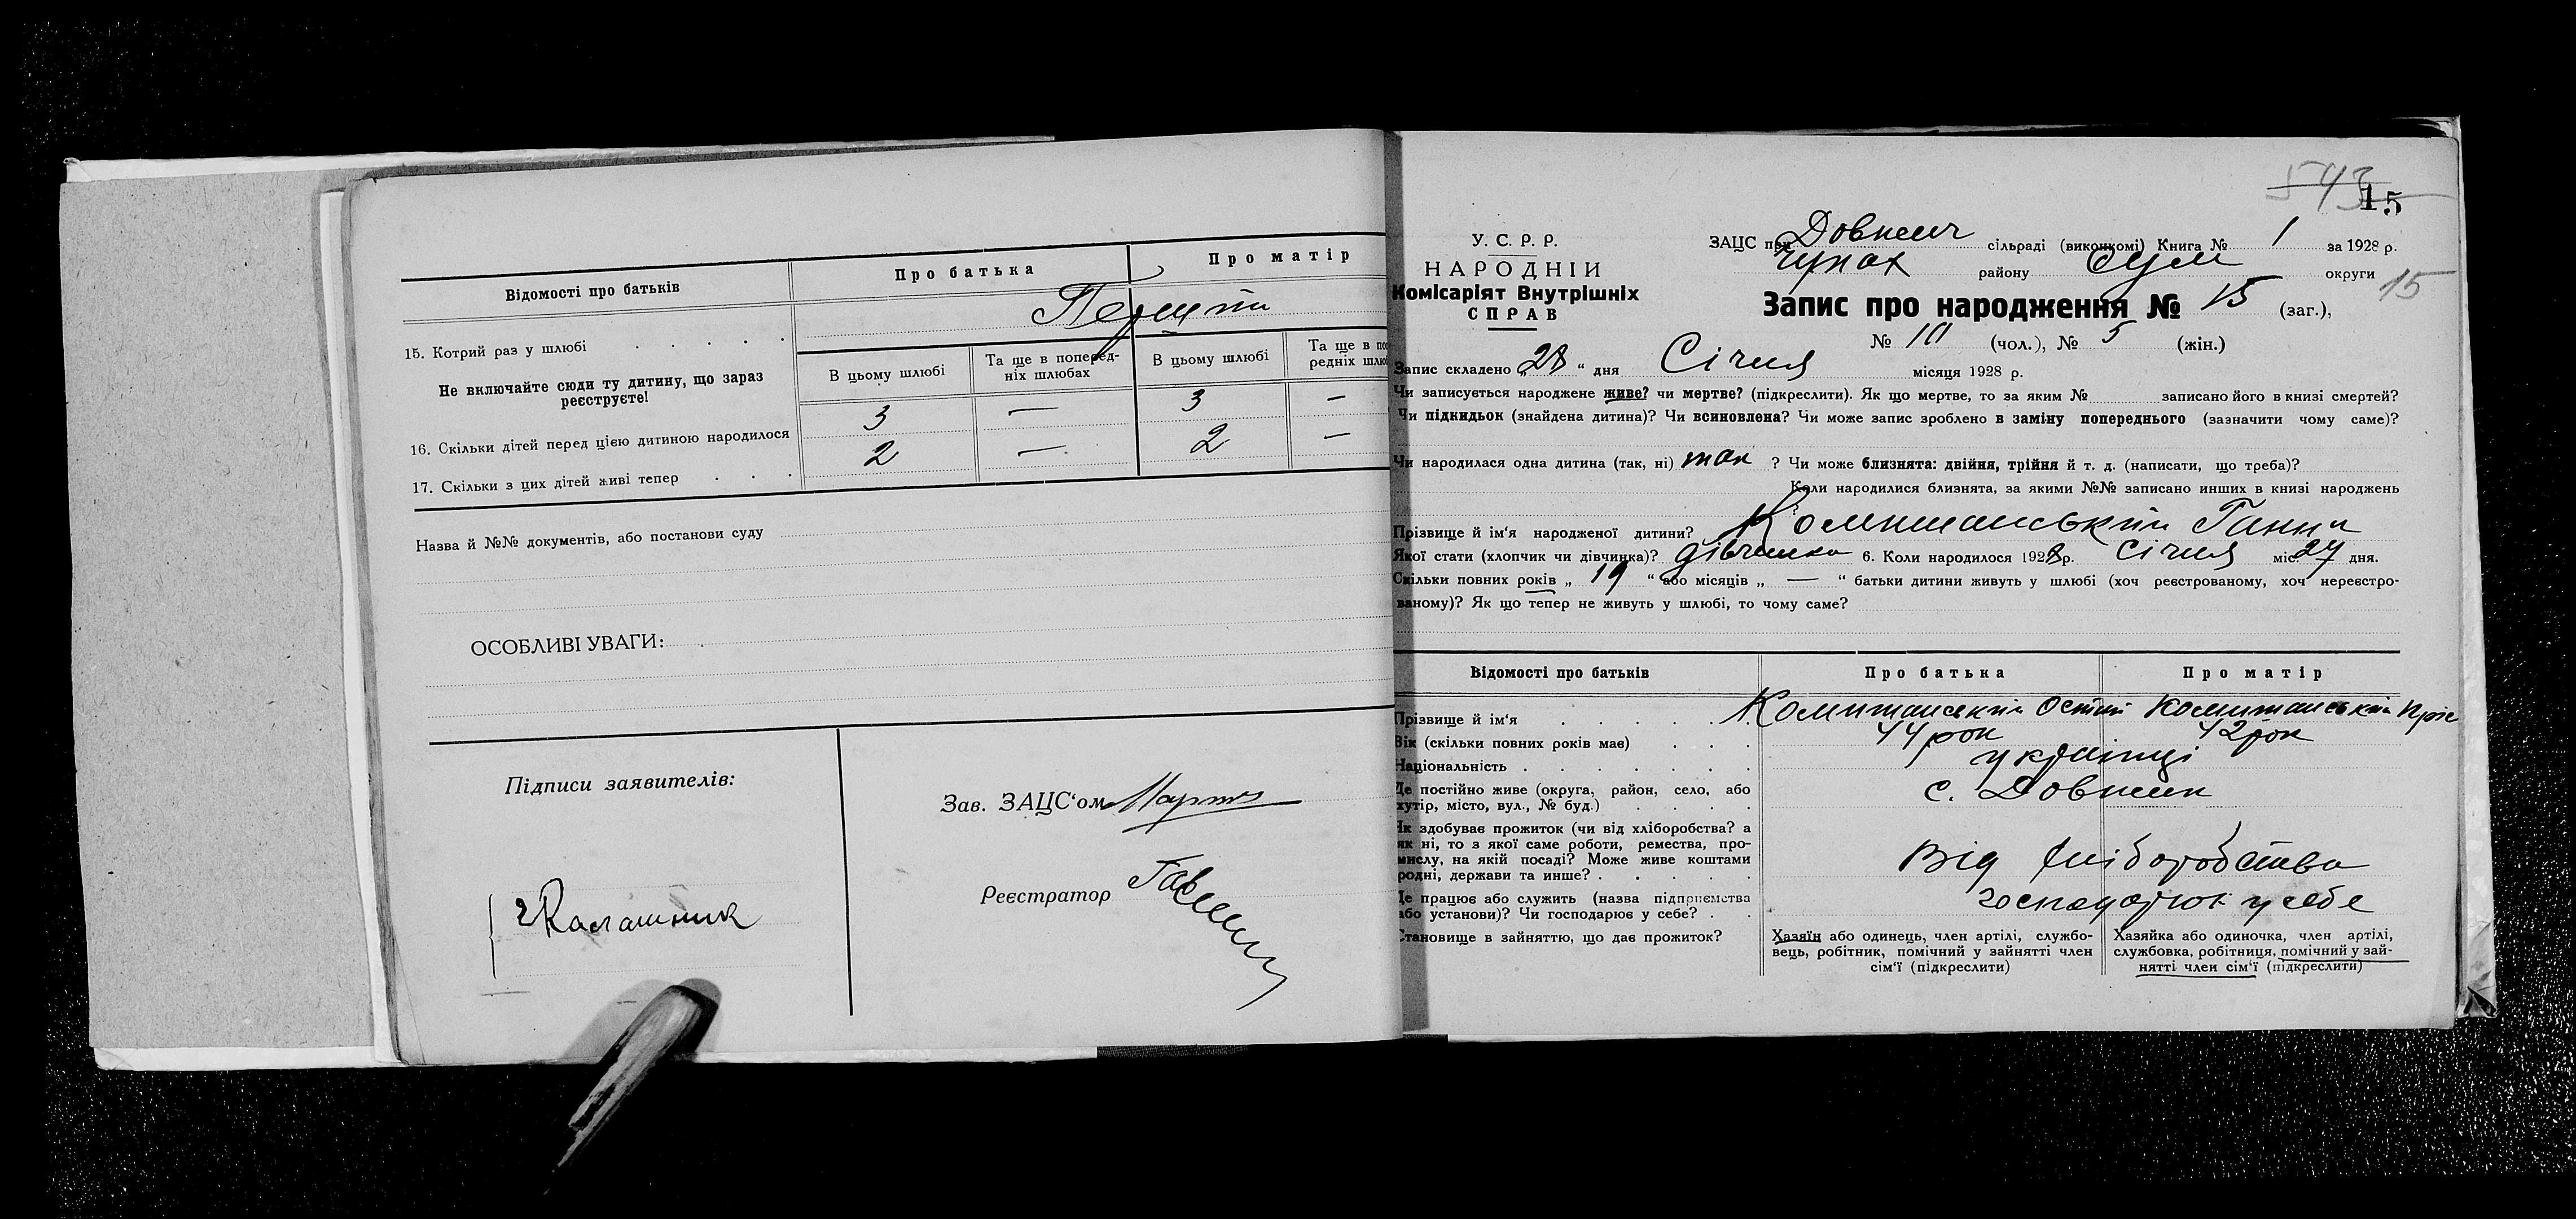 Відомості про батьків
Про батька
Про матір
15. Котрий раз у шлюбі
Не включайте сюди ту дитину, що зараз
реєструєте!
В цьому шлюбі
Та ще в поперед-
ніх шлюбах
В цьому шлюбі
Та ще в по
редніх шлю
16. Скільки дітей перед цією дитиною народилося
3 — 3 —
17. Скільки з цих дітей живі тепер
2 — 2 —
Назва й №№ документів, або постанови суду
ОСОБЛИВІ УВАГИ:
Підписи заявителів:
Калашник
Зав. ЗАЦС'ом
Реєстратор
543
15
У. С. Р. Р.
НАРОДНІЙ
Комісаріят Внутрішніх
СПРАВ
ЗАЦС при Довжич сільраді (виконкомі) Книга № 1 за 1928 р.
району Сум округи 15
Запис про народження № 15 (заг.),
№ 10 (чол.), № 5 (жін.)
Запис складено „28“ дня Січня місяця 1928 р.
Чи записується народжене живе? чи мертве? (підкреслити). Як що мертве, то за яким № записано його в книзі смертей?
Чи підкидьок (знайдена дитина)? Чи всиновлена? Чи може запис зроблено в заміну попереднього (зазначити чому саме)?
Чи народилася одна дитина (так, ні) так ? Чи може близнята: двійня, трійня й т. д. (написати, що треба)?
Коли народилися близнята, за якими №№ записано инших в книзі народжень
Прізвище й ім'я народженої дитини? Комишанський Ганна
Якої стати (хлопчик чи дівчинка)? дівчинка 6. Коли народилося 1928 р. Січня міс. 27 дня.
Скільки повних років „ 19 “ або місяців „ — “ батьки дитини живуть у шлюбі (хоч реєстрованому, хоч нереєстро-
ваному)? Як що тепер не живуть у шлюбі, то чому саме?
Відомості про батьків
Про батька
Про матір
Прізвище й ім'я
Комишанський Остап Комишанській
Вік (скільки повних років має)
44 рок 42 рок
Національність
українці
Де постійно живе (округа, район, село, або
хутір, місто, вул., № буд.)
с. Довжик
Як здобуває прожиток (чи від хліборобства? а
як ні, то з якої саме роботи, ремества, про-
мислу, на якій посаді? Може живе коштами
родні, держави та инше?
Від хліборобства
Де працює або служить (назва підприємства
або установи)? Чи господарює у себе?
господарює у себе
Становище в зайняттю, що дає прожиток?
Хазяїн або одинець, член артілі, службо-
вець, робітник, помічний у зайнятті член
сім'ї (підкреслити)
Хазяйка або одиночка, член артілі,
службовка, робітниця, помічний у зай-
нятті член сім'ї (підкреслити)